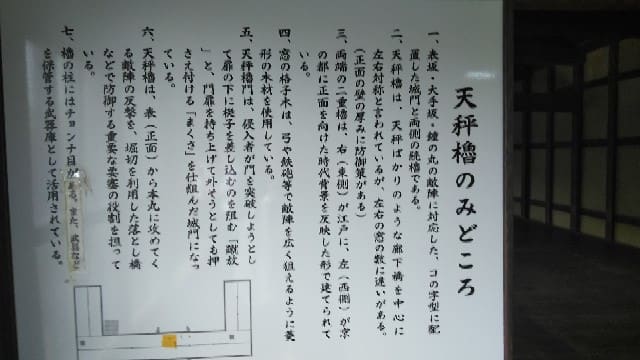 天秤櫓のみどころ
一、表坂・大手坂・鐘の丸の敵陣に対応した、コの字型に配
置した城門と両側の続櫓である。
二、天秤櫓は、天秤ばかりのような廊下橋を中心に
左右対称と言われているが、左右の窓の数に違いがある。
(正面の壁の厚みに防御策がある)
三、両端の二重櫓は、右(東側)が江戸に、左(西側)が京
の都に正面を向けた時代背景を反映した形で建てられて
いる。
四、窓の格子木は、弓や鉄砲等で敵陣を広く狙えるように菱
形の木材を使用している。
五、天秤櫓門は、侵入者が門を突破しようとし
て扉の下に梃子を差し込むのを阻む「蹴放
」と、門扉を持ち上げて外そうとしても押
さえ付ける「まくさ」を仕組んだ城門になっ
ている。
六、天秤櫓は、表(正面)から本丸に攻めてく
る敵陣の反撃を、堀切を利用した落とし橋
などで防御する重要な要塞の役割を担って
いる。
七、櫓の柱にはチョンナ目がある。また、武器など
を保管する武器庫として活用されている。